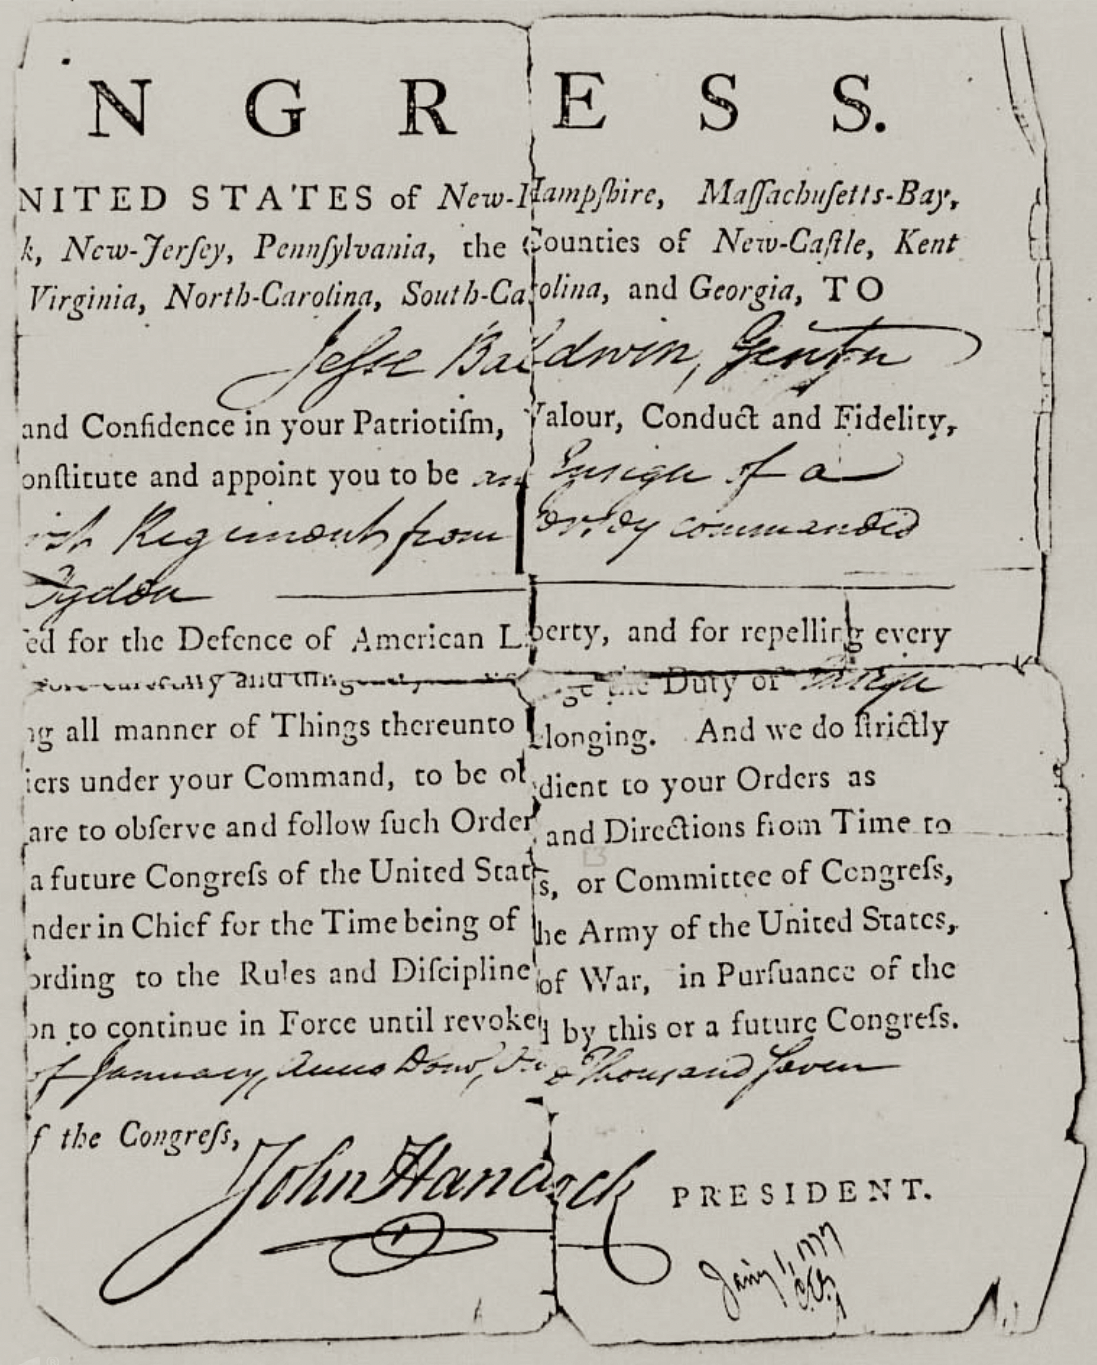 N G R E S S.
NITED STATES of New-Hampſhire, Maſſachuſetts-Bay,
k, New-Jerſey, Pennſylvania, the Counties of New-Caſtle, Kent
Virginia, North-Carolina, South-Carolina, and Georgia, TO
Jeſse Baldwin, Gentn
and Confidence in your Patriotiſm, Valour, Conduct and Fidelity,
onſtitute and appoint you to be an Ensign of a
Regiment from commanded
Ogden
ed for the Defence of American Liberty, and for repelling every
carefully and the Duty of Ensign
ng all manner of Things thereunto longing. And we do ſtrictly
iers under your Command, to be obedient to your Orders as
are to obſerve and follow ſuch Orders and Directions from Time to
a future Congreſs of the United States, or Committee of Congreſs,
nder in Chief for the Time being of the Army of the United States,
ording to the Rules and Diſcipline of War, in Purſuance of the
on to continue in Force until revoked by this or a future Congreſs.
of January, Anno Dom, One Thousand Seven
f the Congreſs,
John Hancock PRESIDENT.
Jany 1, 1777